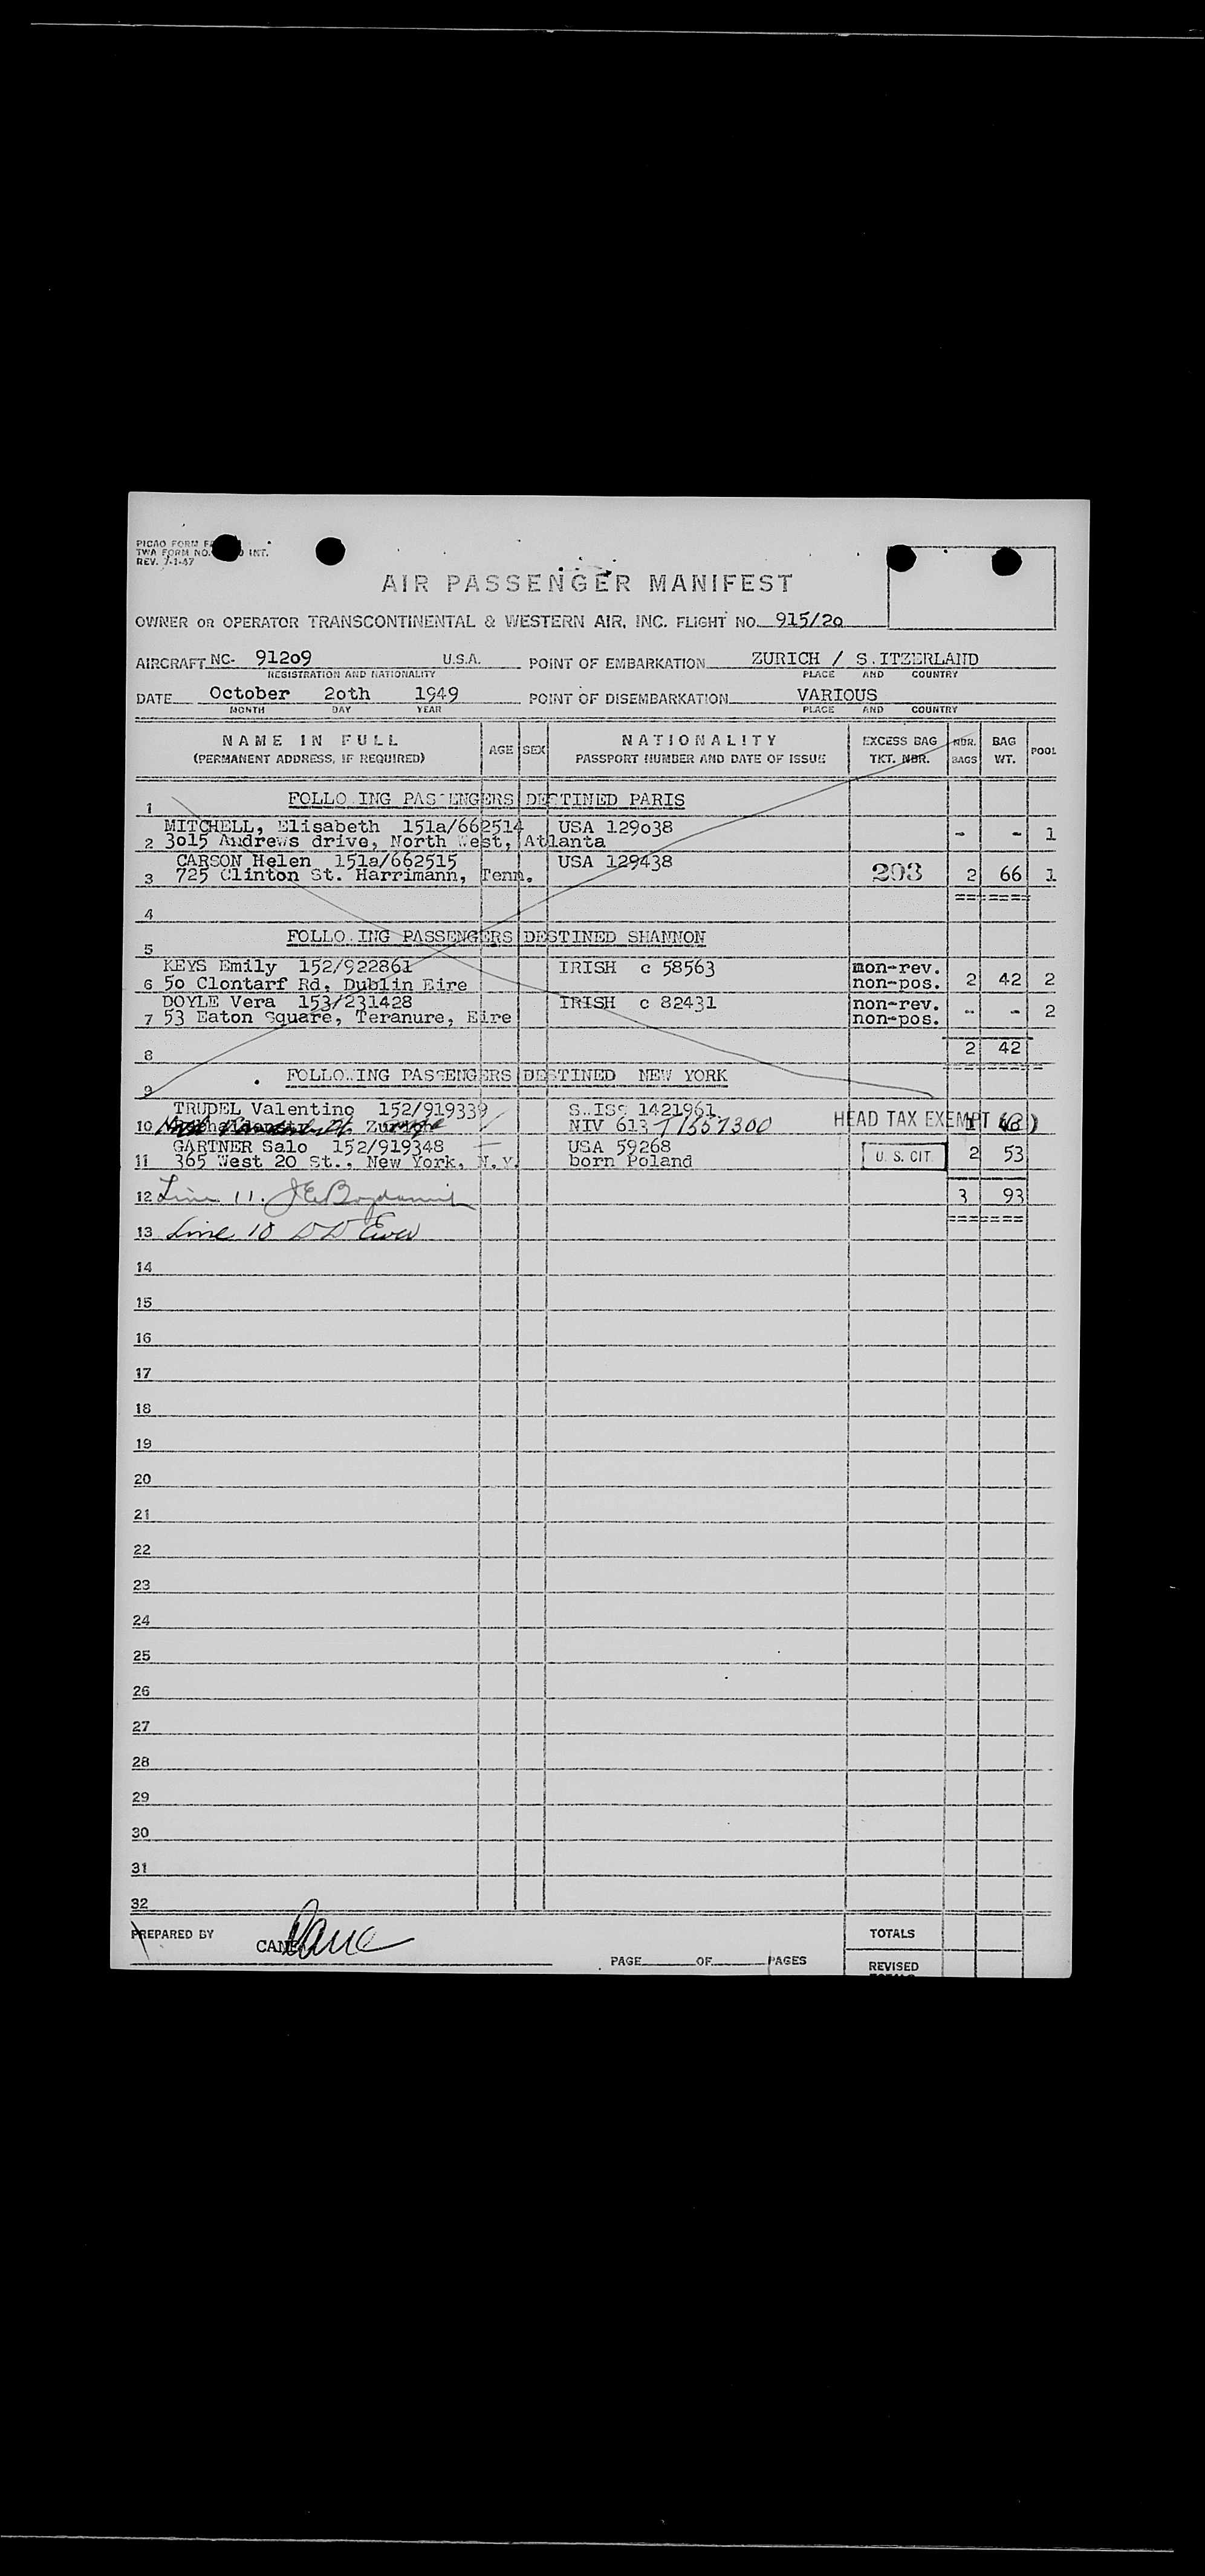 PICAO FORM
TWA FORM NO. INT.
REV. 7-1-47
AIR PASSENGER MANIFEST
OWNER OR OPERATOR TRANSCONTINENTAL & WESTERN AIR, INC. FLIGHT NO. 915/2o
AIRCRAFT NC- 912o9 U.S.A. POINT OF EMBARKATION ZURICH / S.ITZERLAND
REGISTRATION AND NATIONALITY PLACE AND COUNTRY
DATE October 2oth 1949 POINT OF DISEMBARKATION VARIOUS
MONTH DAY YEAR PLACE AND COUNTRY
NAME IN FULL AGE SEX NATIONALITY EXCESS BAG NBR. BAG POOL
(PERMANENT ADDRESS, IF REQUIRED) PASSPORT NUMBER AND DATE OF ISSUE TKT. NBR. BAGS WT.
1 FOLLO.ING PASSENGERS DESTINED PARIS
MITCHELL, Elisabeth 151a/662514 USA 129o38
2 3o15 Andrews drive, North West, Atlanta - - 1
CARSON Helen 151a/662515 USA 129438
3 725 Clinton St. Harrimann, Tenn. 293 2 66 1
4 == ====
5 FOLLO.ING PASSENGERS DESTINED SHANNON
KEYS Emily 152/922861 IRISH c 58563 non-rev.
6 5o Clontarf Rd, Dublin Eire non-pos. 2 42 2
DOYLE Vera 153/231428 IRISH c 82431 non-rev.
7 53 Eaton Square, Teranure, Eire non-pos. - - 2
8 2 42
9 FOLLO.ING PASSENGERS DESTINED NEW YORK
TRUDEL Valentino 152/919339 S.ISS 1421961
10 Zurich NIV 613 HEAD TAX EXEMPT
GARTNER Salo 152/919348 USA 59268
11 365 West 20 St., New York, N.Y. born Poland U. S. CIT. 2 53
12 Line 11. 3 93
13 Line 10
14
15
16
17
18
19
20
21
22
23
24
25
26
27
28
29
30
31
32
PREPARED BY CANE TOTALS
PAGE OF PAGES REVISED